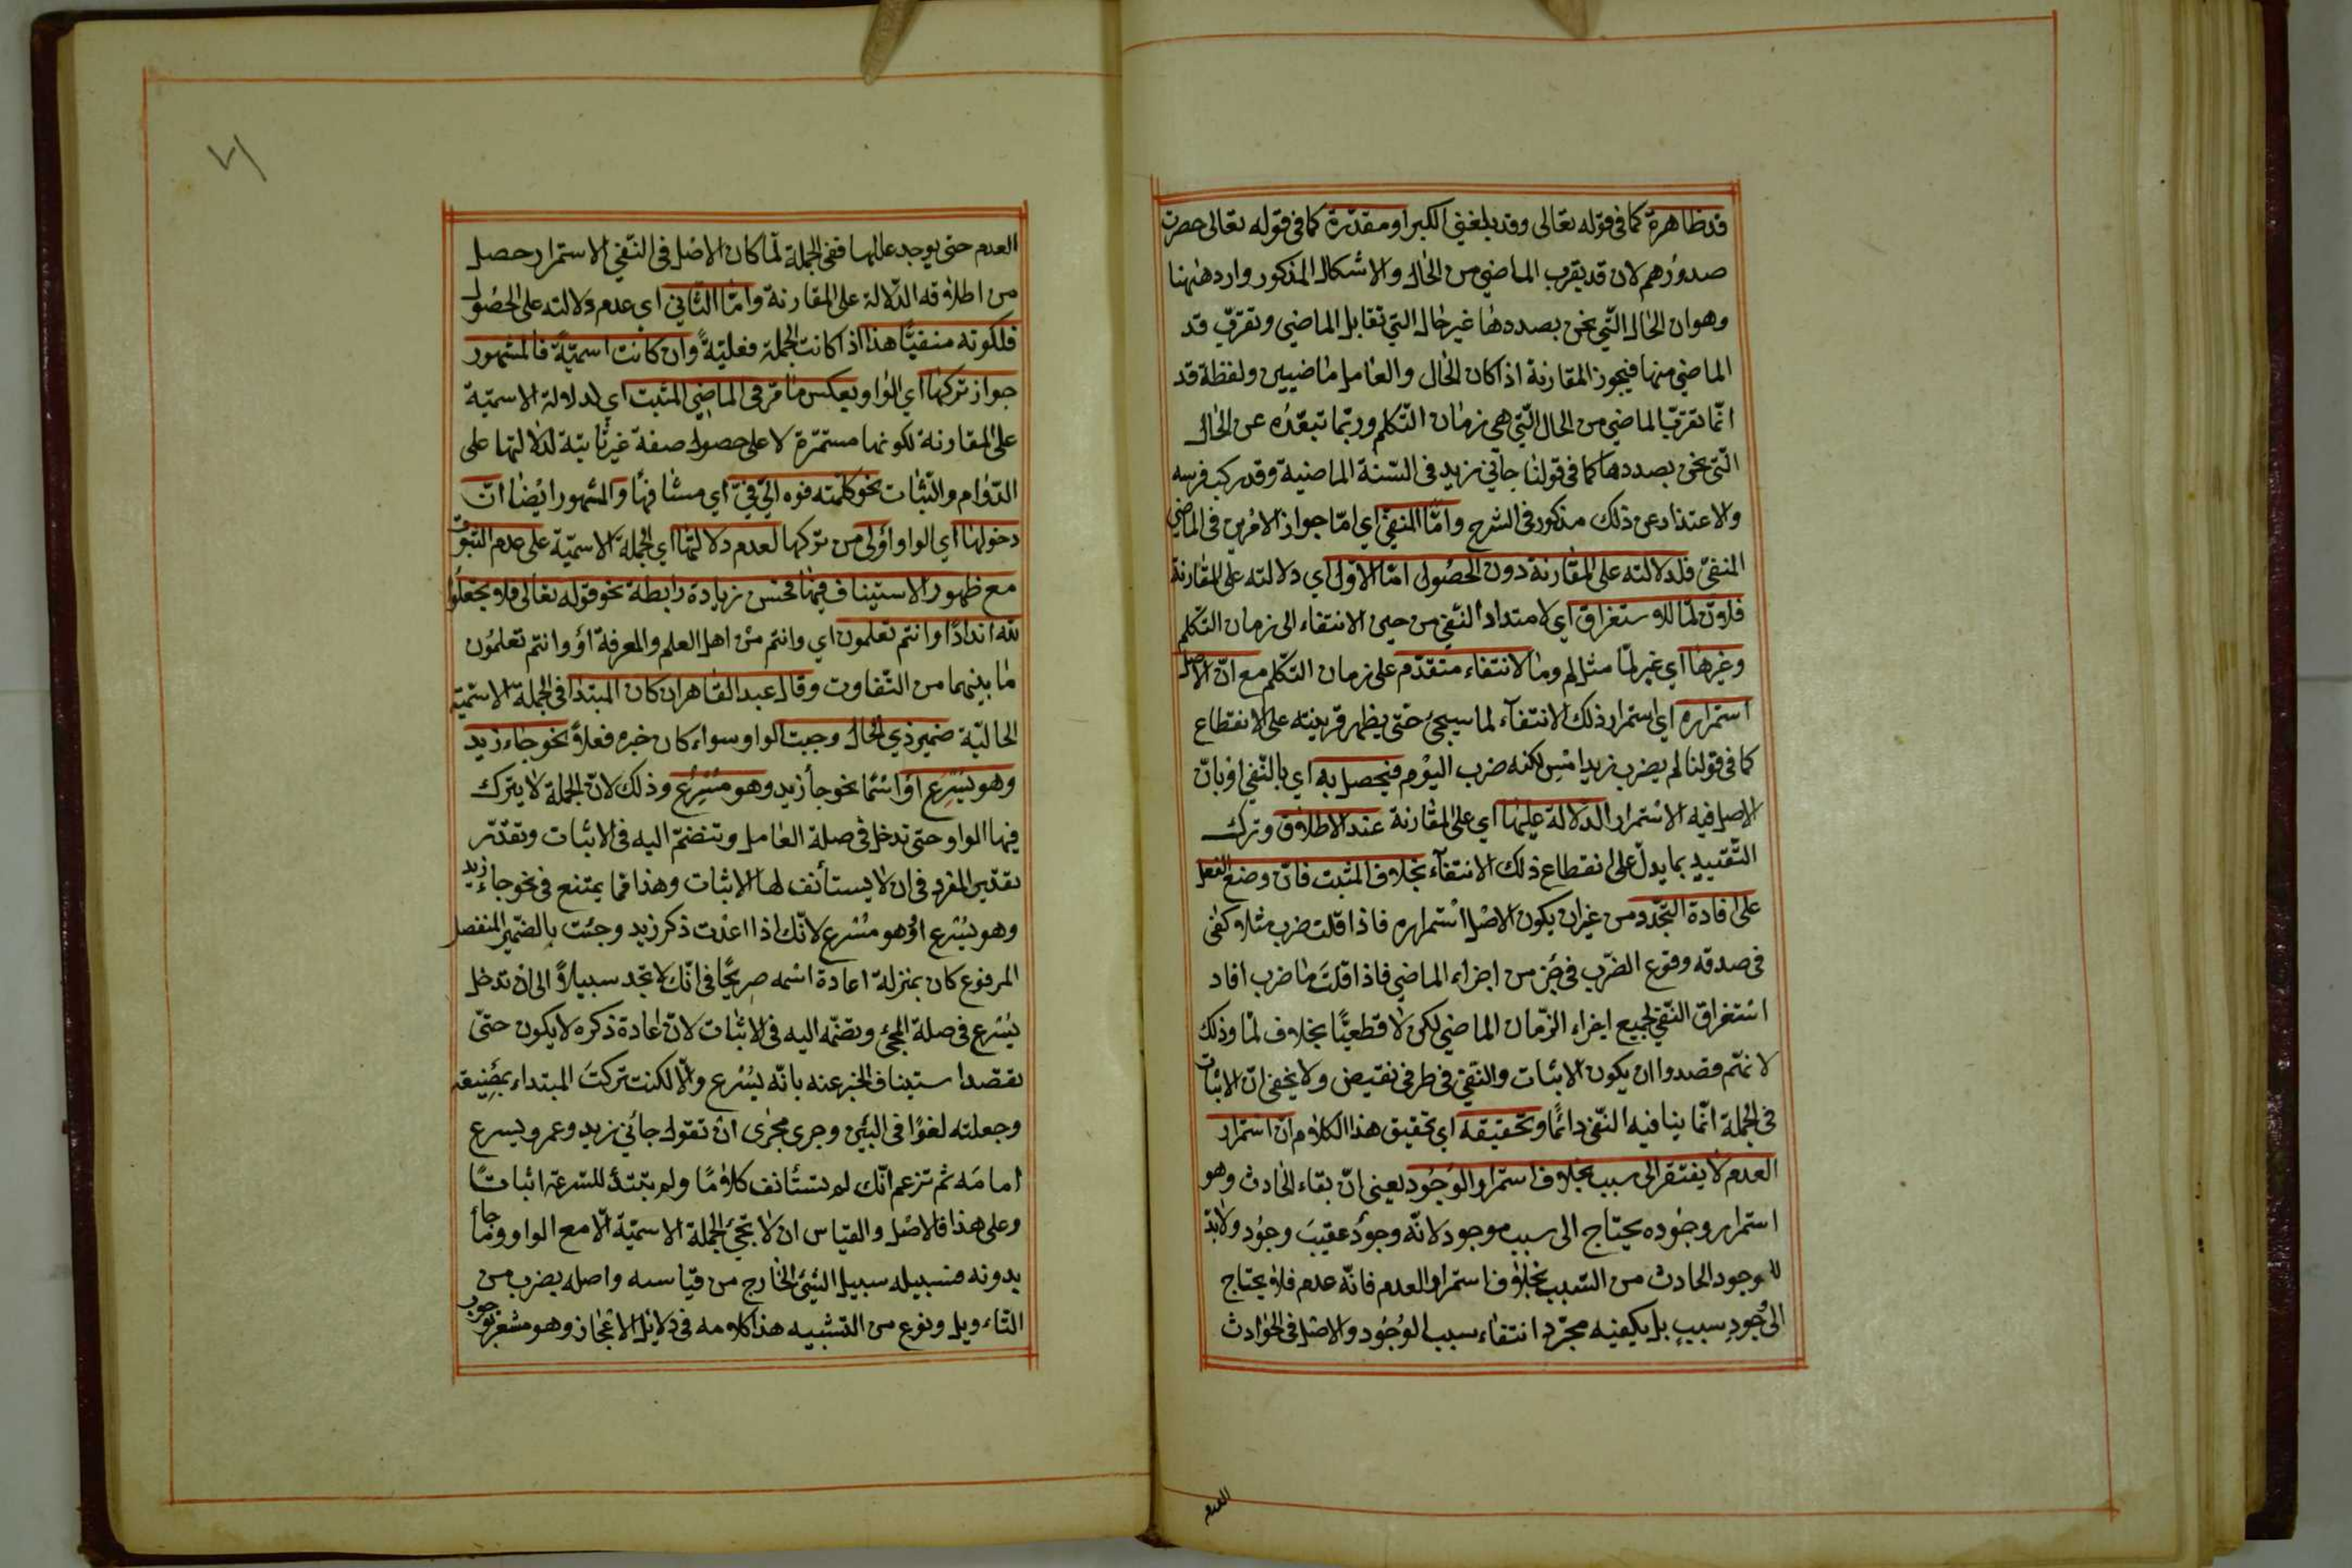 قد ظاهرة كما في قوله تعالى وقد بلغني الكبر او مقدّرة كما في قوله تعالى حصرت
صدورهم لان قد يقرب الماضي من الحال والاشكال المذكور وارد ههنا
وهو ان الحال الّتي نحن بصددها غير حال التي تقابل الماضي وتقرّب قد
الماضي منها فيجوز المقارنة اذا كان الحال والعامل ماضيين ولفظة قد
انّما تقرّب الماضي من الحال الّتي هي زمان التّكلم وربّما تبعّده عن الحال
الّتي نحن بصددها كما في قولنا جاءني زيد في السّنة الماضية وقد ركب فرسه
والاعتذار عن ذلك مذكور في الشرح وامّا المنفيّ اي امّا جواز الامرين في الماضي
المنفيّ فلدلالته على المقارنة دون الحصول امّا الاوّل اي دلالته على المقارنة
فلانّ لمّا للاستغراق اي لامتداد النّفي من حين الانتفاء الى زمان التّكلم
وغيرها اي غير لمّا مثل لم وما لانتفاء متقدّم على زمان التّكلم مع انّ الاصل
استمراره اي استمرار ذلك الانتفاء لما سيجئ حتّى يظهر قرينته على الانقطاع
كما في قولنا لم يضرب زيد امس لكنه ضرب اليوم فيحصل به اي بالنّفي او بانّ
الاصل فيه الاستمرار الدلالة عليها اي على المقارنة عند الاطلاق وترك
التّقييد بما يدلّ على انقطاع ذلك الانتفاء بخلاف المثبت فانّ وضع الفعل
على افادة التجدّد من غير ان يكون الاصل استمراره فاذا قلت ضرب مثلا كفى
في صدقه وقوع الضّرب في جزء من اجزاء الماضي فاذا قلت ما ضرب افاد
استغراق النّفي لجميع اجزاء الزّمان الماضي لكن لا قطعيّا بخلاف لمّا وذلك
لانّهم قصدوا ان يكون الاثبات والنّفي في طرفي نقيض ولا يخفى انّ الاثبات
في الجملة انّما ينافيه النّفي دائمًا وتحقيقه اي تحقيق هذا الكلام انّ استمرار
العدم لا يفتقر الى سبب بخلاف استمرار الوجود يعني انّ بقاء الحادث وهو
استمرار وجوده يحتاج الى سبب موجود لانّه وجود عقيب وجود ولا بدّ
للوجود الحادث من السّبب بخلاف استمرار العدم فانّه عدم فلا يحتاج
الى وجود سبب بل يكفيه مجرّد انتفاء سبب الوجود والاصل في الحوادث
العدم
٧١
العدم حتى يوجد عللها ففي الجملة لمّا كان الاصل في النّفي الاستمرار حصل
من اطلاقه الدّلالة على المقارنة وامّا الثّاني اي عدم دلالته على الحصول
فلكونه منفيّا هذا اذا كانت الجملة فعليّة وان كانت اسميّة فالمشهور
جواز تركها اي الواو بعكس ما مرّ في الماضي المثبت اي لدلالة الاسميّة
على المقارنة لكونها مستمرّة لا على حصول صفة غير ثابتة لدلالتها على
الدّوام والثّبات نحو كلّمته فوه الى فيّ اي مشافهًا والمشهور ايضًا انّ
دخولها اي الواو اولى من تركها لعدم دلالتها اي الجملة الاسميّة على عدم الثبوت
مع ظهور الاستيناف فيها فحسن زيادة رابطة نحو قوله تعالى فلا تجعلوا
لله اندادًا وانتم تعلمون اي وانتم من اهل العلم والمعرفة او وانتم تعلمون
ما بينهما من التّفاوت وقال عبد القاهر ان كان المبتدا في الجملة الاسميّة
الحاليّة ضمير ذي الحال وجبت الواو سواء كان خبره فعلا نحو جاء زيد
وهو يسرع او اسمًا نحو جاء زيد وهو مسرع وذلك لانّ الجملة لا يترك
فيها الواو حتى تدخل في صلة العامل وتنضمّ اليه في الاثبات وتقدّر
تقدير المفرد في ان لا يستأنف لها الاثبات وهذا ممّا يمتنع في نحو جاء زيد
وهو يسرع او هو مسرع لانّك اذا اعدت ذكر زيد وجئت بالضّمير المنفصل
المرفوع كان بمنزلة اعادة اسمه صريحًا في انّك لا تجد سبيلًا الى ان تدخل
يسرع في صلة المجئ وتضمّه اليه في الاثبات لانّ اعادة ذكره لا يكون حتّى
تقصد استيناف الخبر عنه بانّه يسرع والّا لكنت تركت المبتداء بمضيعة
وجعلته لغوًا في البين وجرى مجرى ان تقول جاءني زيد وعمرو يسرع
امامه ثم تزعم انّك لم تستأنف كلامًا ولم تبتدأ للسّرعة اثباتًا
وعلى هذا فالاصل والقياس ان لا تجئ الجملة الاسميّة الّا مع الواو وما جاء
بدونه فسبيله سبيل الشئ الخارج من قياسه واصله بضرب من
التّاءويل ونوع من التّشبيه هذا كلامه في دلائل الاعجاز وهو مشعر بوجوب